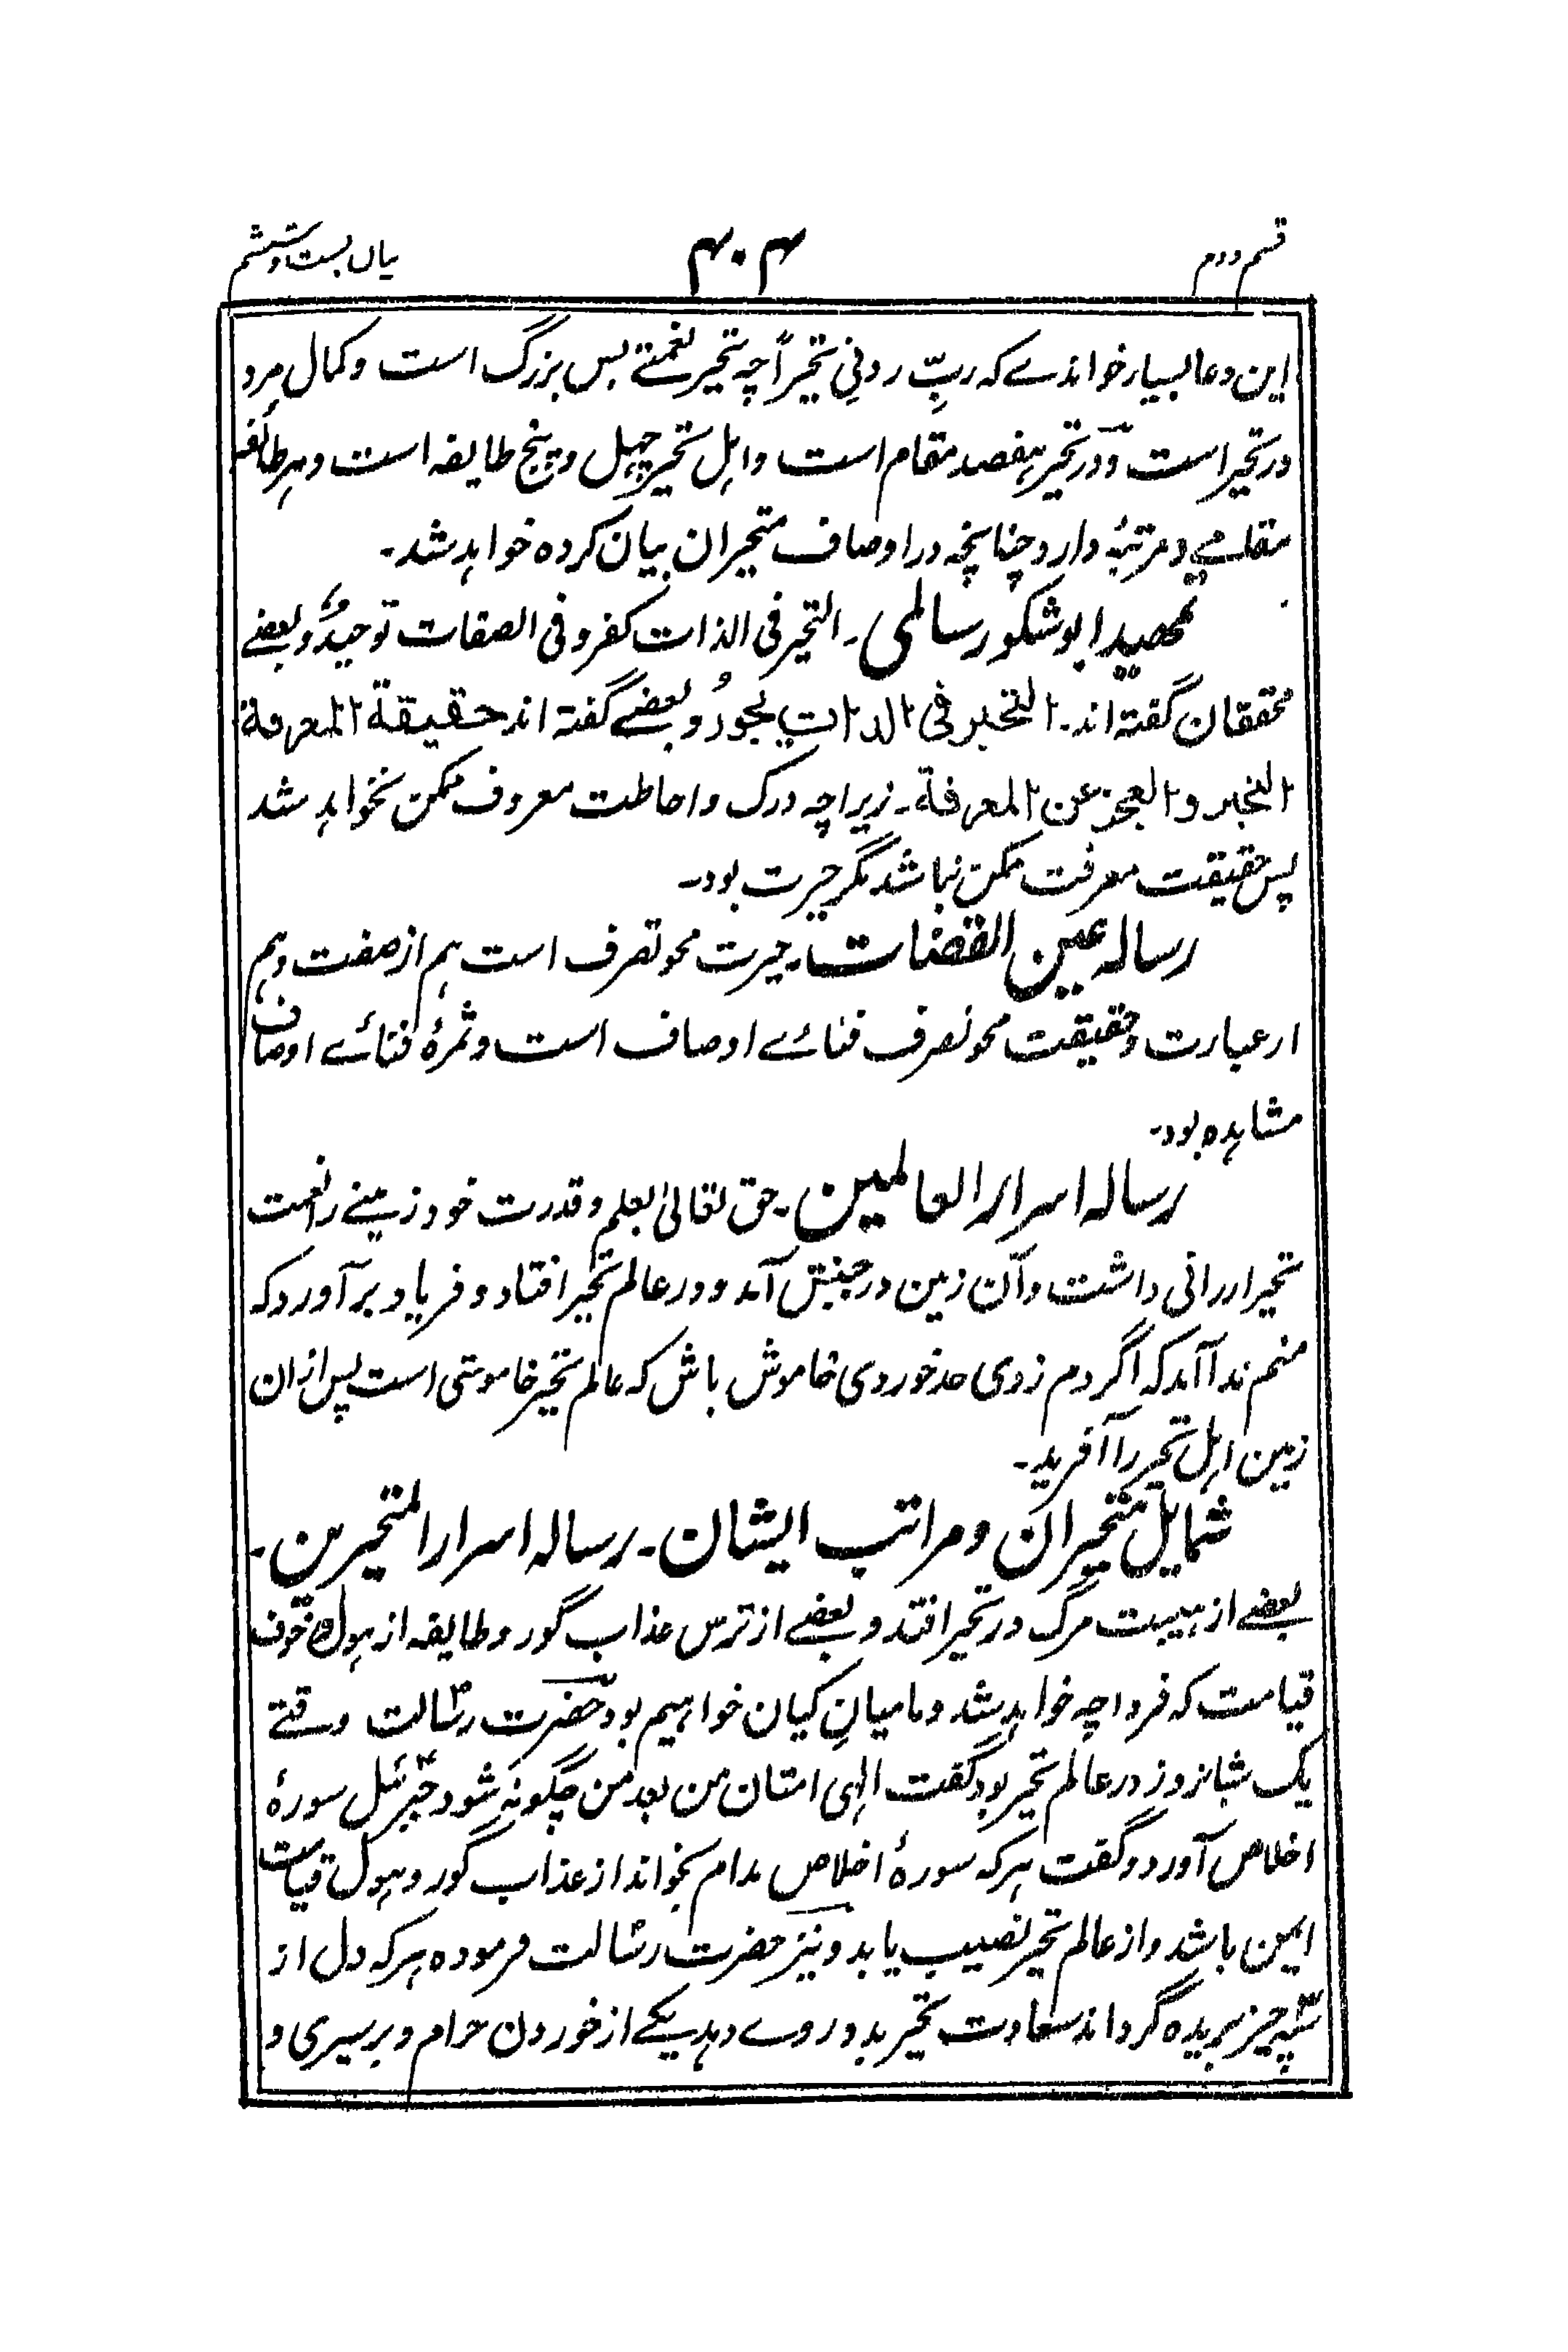 قسم دوم ۴۰۴ بیاں بست و ششم
این دعا بسیار خواندے که ربِّ زدنی تحیراً چه تحیر نعمتے بس بزرگ است و کمال مرد
در تحیر است و در تحیر هفصد مقام است و اهل تحیر چهل و پنج طایفه است و هر طائفه
مقامے و مرتبهٔ دارد چنانچه در اوصاف متحیران بیان کرده خواهد شد۔
تمهید ابو شکور سالمی۔ التحیر فی الذات کفر و فی الصفات توحیدٌ و بعضے
محققان گفته اند۔ التحیر فی الذات یجوز و بعضے گفته اند حقیقة المعرفة
التحیر و العجز عن المعرفة۔ زیراچه درک و احاطت معروف ممکن نخواهد شد
پس حقیقت معرفت ممکن نباشد مگر حیرت بود۔
رساله عین القضات۔ حیرت محو تصرف است هم از صفت و هم
از عبارت و حقیقت محو تصرف فنائے اوصاف است و ثمرهٔ فنائے اوصاف
مشاهده بود۔
رساله اسرار العالمین۔ حق تعالیٰ بعلم و قدرت خود زمینے را نعمت
تحیر ارزانی داشت و آن زمین در جنبش آمد و در عالم تحیر افتاد و فریاد بر آورد که
منم ندا آمد که اگر دم زدی حد خوردی خاموش باش که عالم تحیر خاموشی است پس ازان
زمین اهل تحیر را آفرید۔
شمایل متحیران و مراتب ایشان۔ رساله اسرار المتحیرین۔
بعضے از هیبت مرگ در تحیر افتند و بعضے از ترس عذاب گور و طایفه از هول و خوف
قیامت که فردا چه خواهد شد و ما میانِ کیان خواهیم بود حضرت رسالت وقتے
یک شبانروز در عالم تحیر بود گفت الهی امتان من بعد من چگونه شود جبرئیل سورهٔ
اخلاص آورد و گفت هر که سورهٔ اخلاص مدام بخواند از عذاب گور و هول قیامت
ایمن باشد و از عالم تحیر نصیب یابد و نیز حضرت رسالت فرموده هر که دل از
سه چیز بریده گرداند سعادت تحیر بدو روے دهد یکے از خوردن حرام و بر سیری و